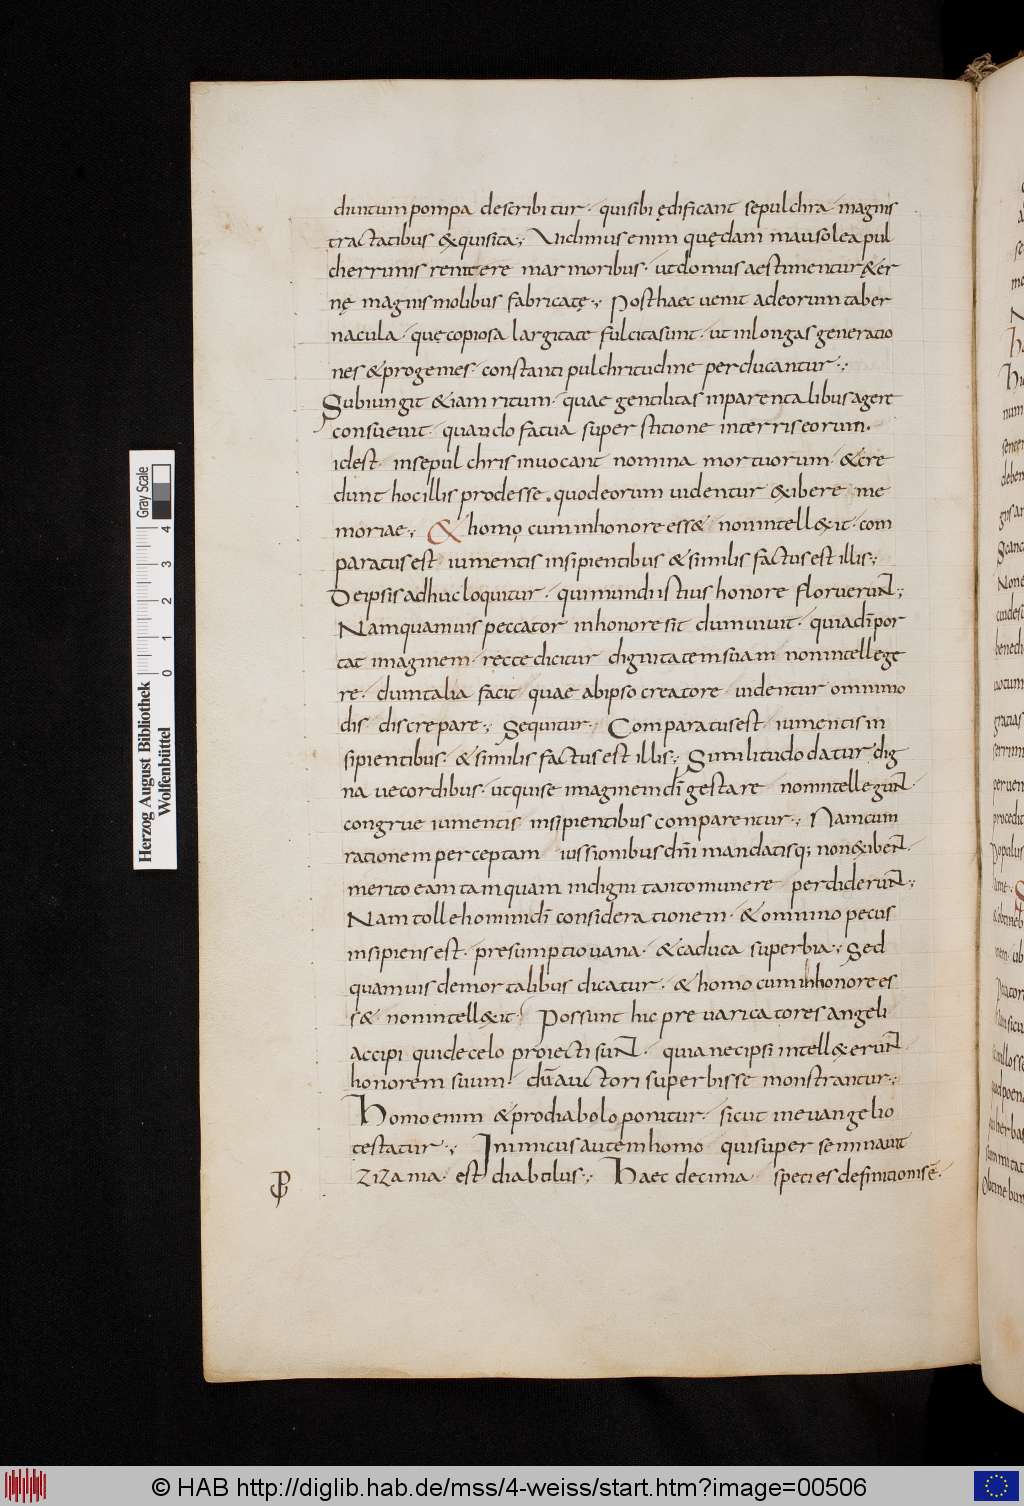 diuitum pompa describitur · qui sibi ędificant sepulchra · magnis
tractatibus exquisita ·, Vidimus enim quędam mausolea pul
cherrimis renitere marmoribus · ut domus aestimentur &er
nę magnis molibus fabricatę ·, Post haec uenit ad eorum taber
nacula · quę copiosa largitate fulcita sunt · ut in longas generatio
nes & progenies · constanti pulchritudine perducantur ·,
Subiungit &iam ritum · quae gentilitas in parentalibus agere
consueuit · quando fatua superstitione in terris eorum ·
id est · in sepulchris inuocant nomina mortuorum · & cre
dunt hoc illis prodesse · quod eorum uidentur &ibere me
moriae ·, & homo cum in honore ess& non intell&it · com
paratus est iumentis insipientibus & similis factus est illis ·,
De ipsis adhuc loquitur · qui mundi istius honore floruerunt ·,
Nam quamuis peccator in honore sit dum uiuit · quia dī por
tat imaginem · recte dicitur dignitatem suam non intellege
re · dum talia facit quae ab ipso creatore uidentur omnimo
dis discrepare ·, Sequitur · Comparatus est iumentis in
sipientibus · & similis factus est illis ·, Similitudo datur dig
na uecordibus · ut qui se imaginem dī gestare non intellegunt ·
congrue iumentis insipientibus comparentur ·, Nam cum
rationem perceptam iussionibus dn̄i mandatisq; non &ibent ·
merito eam tamquam indigni tanto munere perdiderunt ·,
Nam tolle homini dī considerationem · & omnino pecus
insipiens est · presumptio uana · & caduca superbia ·, Sed
quamuis de mortalibus dicatur · & homo cum in honore es
s& non intell&it · Possunt hic preuaricatores angeli
accipi qui de celo proiecti sunt · quia nec ipsi intell&erunt
honorem suum · dū auctori superbisse monstrantur ·,
Homo enim & pro diabolo ponitur · sicut in euangelio
testatur ·, Inimicus autem homo qui superseminauit
zizania · est diabulus ·, Haec decima species definitionis ē ·
Herzog August Bibliothek
Wolfenbüttel
0 1 2 3 4
Gray Scale
© HAB http://diglib.hab.de/mss/4-weiss/start.htm?image=00506